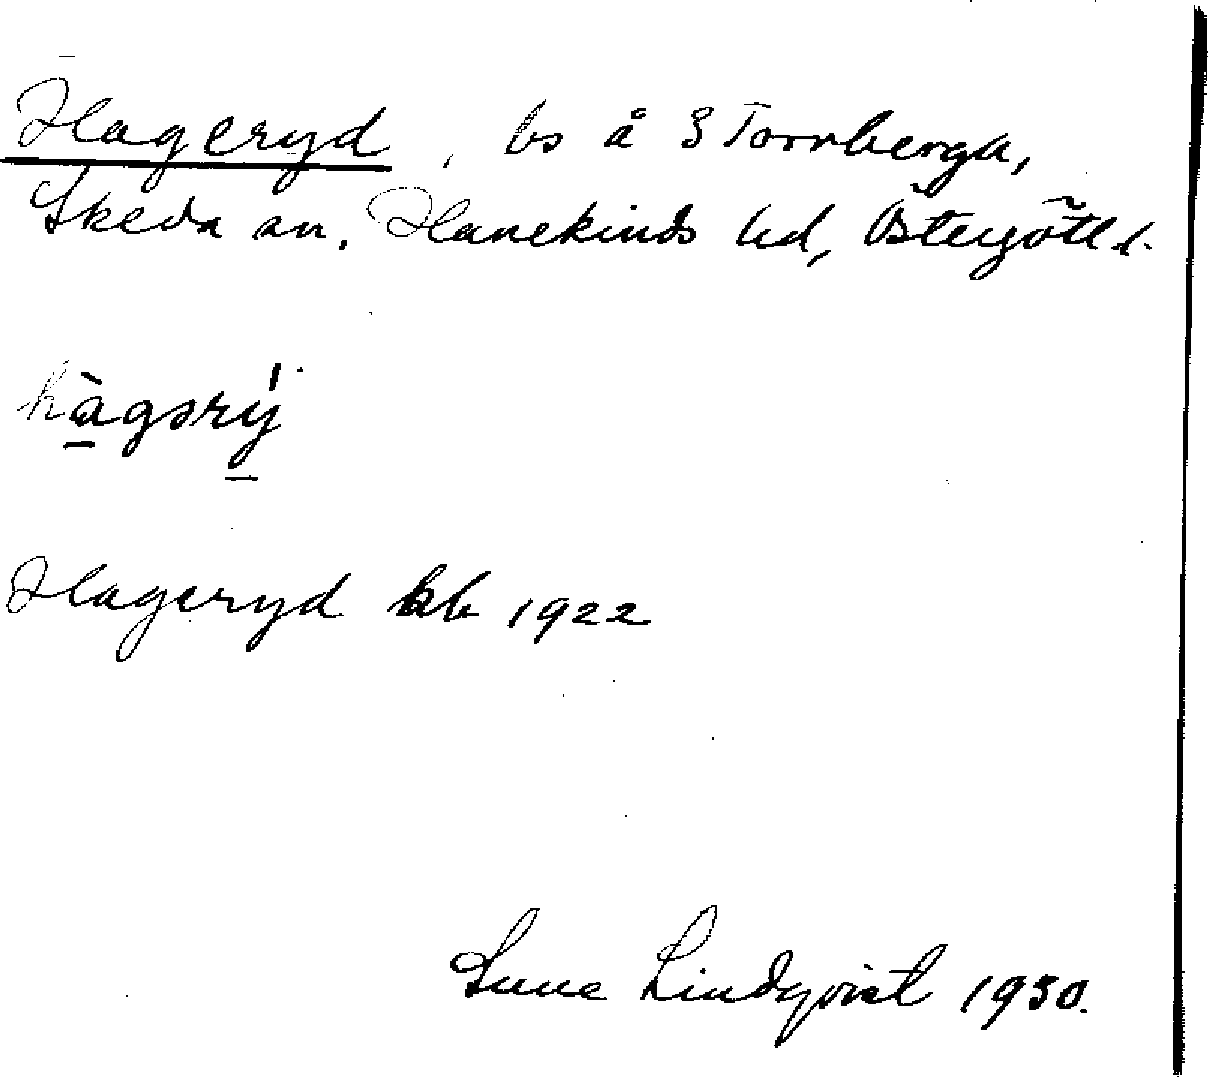 Hageryd, bs å S Torrberga,
Skeda sn, Hanekinds hd, Östergötl.
hàgərý
Hageryd kb 1922
Sune Lindqvist 1930.